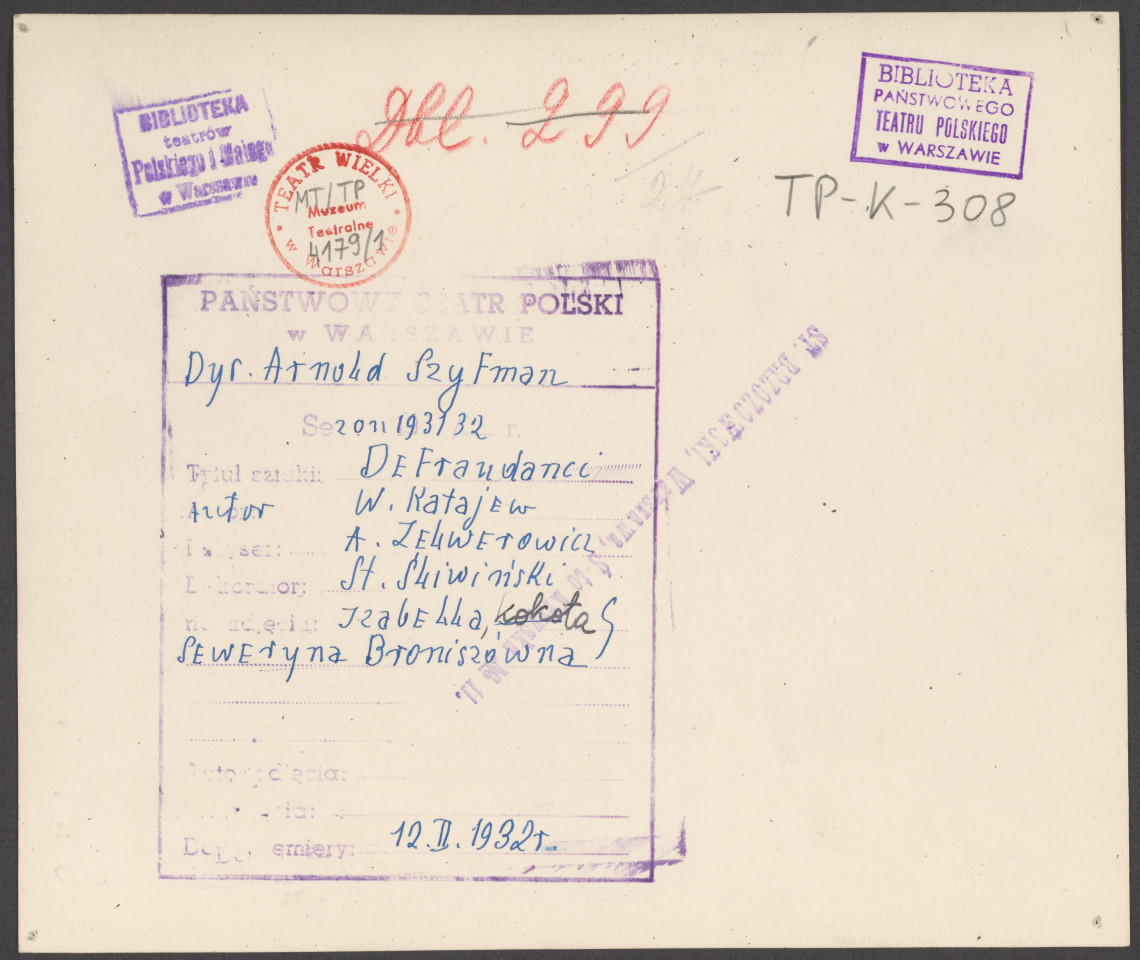 BIBLIOTEKA
teatrów
Polskiego i Małego
w Warszawie
Dbl. 299
BIBLIOTEKA
PAŃSTWOWEGO
TEATRU POLSKIEGO
w WARSZAWIE
TEATR WIELKI
MT/TP
Muzeum
Teatralne
4179/1
w Warszawie
27
TP-K-308
PAŃSTWOWY TEATR POLSKI
w WARSZAWIE
Dyr. Arnold Szyfman
Sezon 1931 32 r.
Tytuł sztuki: Defraudanci
Autor W. Katajew
A. Zelwerowicz
St. Śliwiński
na zdjęciu: Izabella, kokota
Seweryna Broniszówna
ST. BRZOZOWSKI, Warszawa, 11.
12.II.1932r.